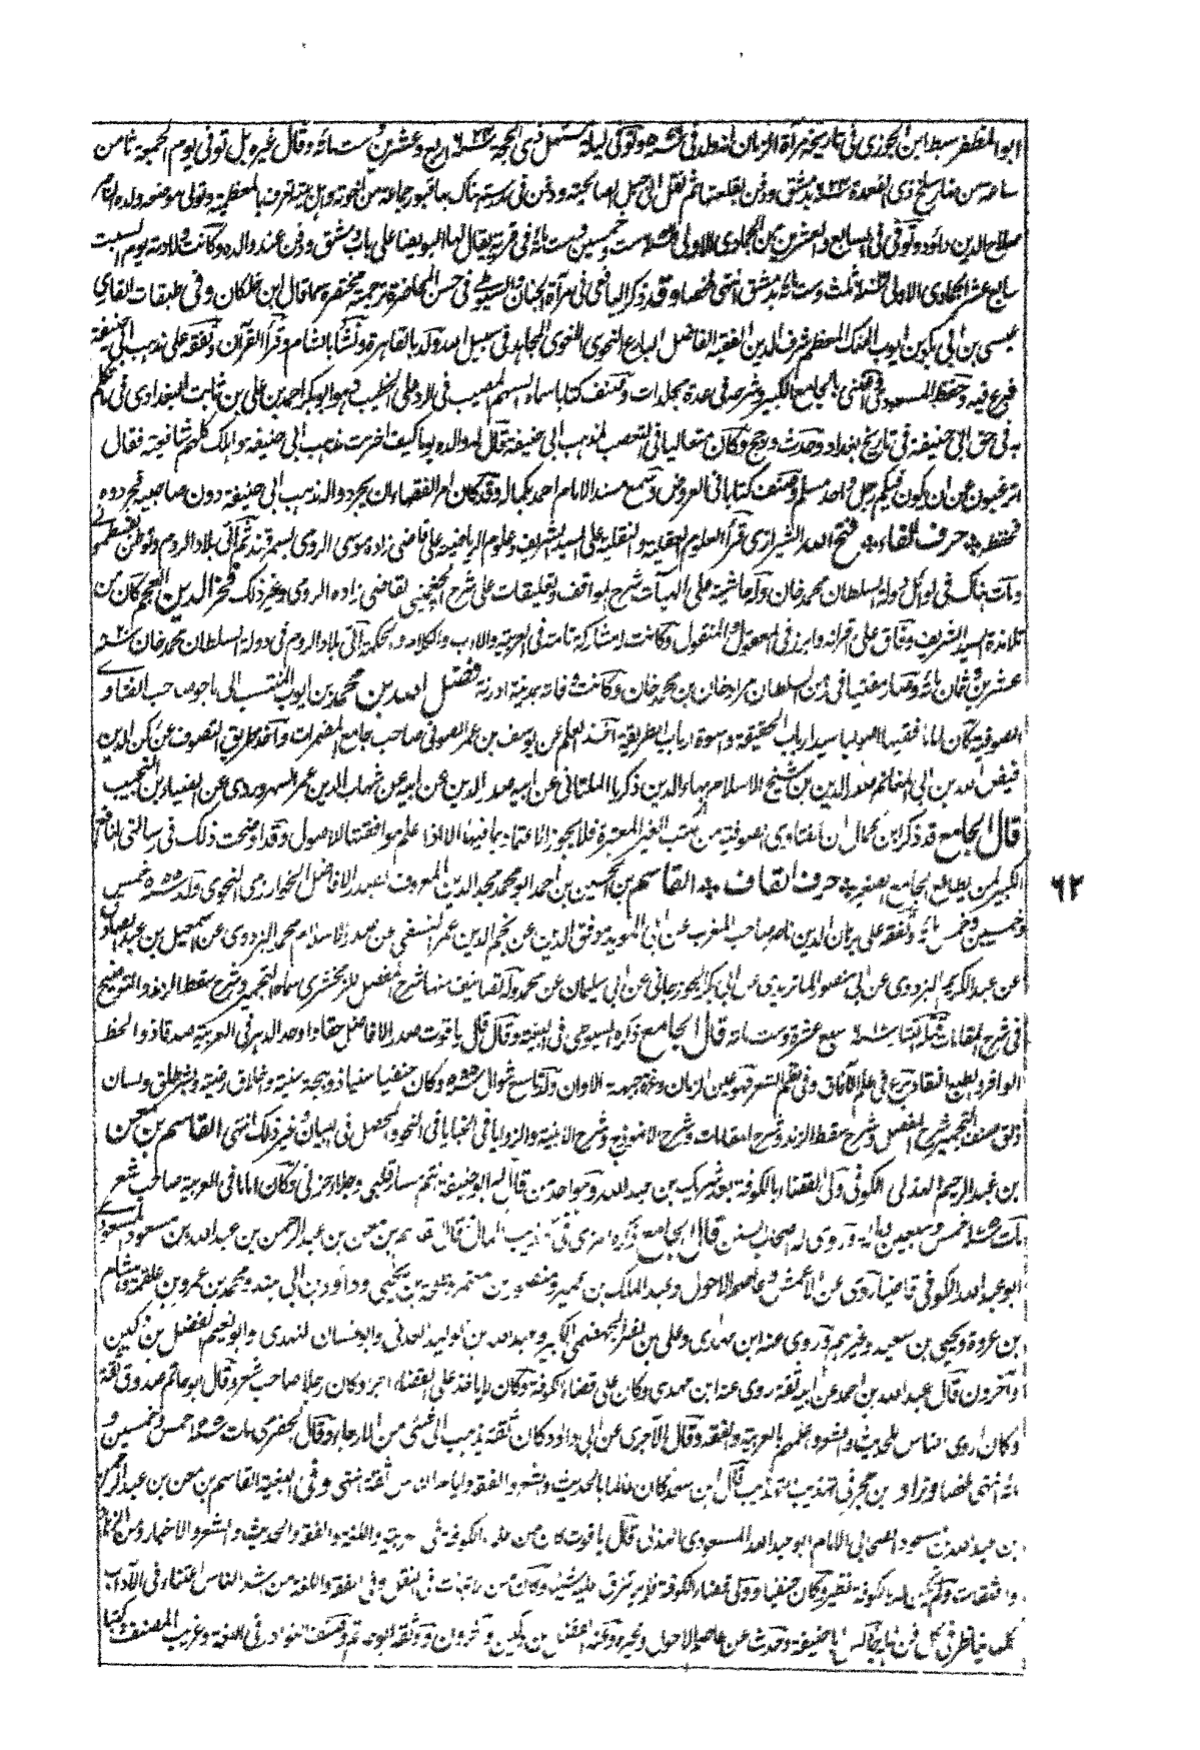 ابو المظفر سبط ابن الجوزى فى تاريخه مرآة الزمان انه ولد فى وتوفى ليلة مستهل ذى الحجة ٦٢٤ اربع وعشرين وست مائة وقال غيره بل توفى يوم الجمعة ثامن
ساعة من نهار سلخ ذى القعدة بدمشق ودفن بقلعتها ثم نقل الى جبل الصالحية ودفن فى مدرسته هناك بها قبور جماعة من اخوته واهل بيته تعرف بالمعظمية وتولى موضعه ولده الناصر
صلاح الدين داود وتوفى فى السابع والعشرين من الجمادى الاولى ست وخمسين وست مائة فى قرية يقال لها البويضا على باب دمشق ودفن عند والده وكانت ولادته يوم السبت
سابع عشر الجمادى الاولى ثلث وست مائة بدمشق انتهى ملخصا وقد ذكر اليافعى فى مرآة الجنان والسيوطى فى حسن المحاضرة ترجمته مختصرة مما قال ابن خلكان وفى طبقات القارى
عيسى بن ابى بكر بن ايوب الملك المعظم شرف الدين الفقيه الفاضل البارع النحوى اللغوى المجاهد فى سبيل الله ولد بالقاهرة ونشأ بالشام وقرأ القرآن وتفقه على مذهب ابى حنيفة
فبرع فيه وحفظ المسعودى واعتنى بالجامع الكبير وشرحه فى عدة مجلدات وصنف كتابا سماه السهم المصيب فى الرد على الخطيب وهو ابو بكر احمد بن على بن ثابت البغدادى فى ما تكلم
به فى حق ابى حنيفة فى تاريخ بغداد وحدث وحج وكان متغاليا فى التعصب لمذهب ابى حنيفة قال له والده يوما كيف اخترت مذهب ابى حنيفة واهلك كلهم شافعية فقال
اترغبون عن ان يكون فيكم رجل واحد مسلم وصنف كتابا فى العروض وسمع مسند الامام احمد بكماله وقد كان امر الفقهاء ان يجردوا له مذهب ابى حنيفة دون صاحبيه فجردوه
فحفظه حرف الفاء فتح الله الشيرازى قرأ العلوم العقلية والنقلية على السيد الشريف وعلوم الرياضية على قاضى زاده موسى الرومى بسمرقند ثم اتى بلاد الروم وتوطن بقسطمونى
ومات هناك فى اوائل دولة السلطان محمد خان وله حاشية على الهيآت شرح المواقف وتعليقات على شرح الجغمينى لقاضى زاده الرومى وغير ذلك فخر الدين العجم كان من
تلامذة السيد الشريف وفاق على اقرانه وابرز فى المعقول والمنقول وكانت له مشاركة تامة فى العربية والادب والكلام والحكمة اتى بلاد الروم فى دولة السلطان محمد خان
عشرين وثمان مائة وصار مفتيا فى زمن السلطان مراد خان بن محمد خان وكانت وفاته بمدينة ادرنة فضل الله بن محمد بن ايوب المنتسب الى ماجو صاحب الفتاوى
الصوفية كان اماما فقيها اصوليا سيد ارباب الحقيقة واسوة ارباب الطريقة اخذ العلم عن يوسف بن عمر الصوفى صاحب جامع المضمرات واخذ طريق التصوف عن ركن الدين
فيض الله بن ابى المغانم صدر الدين بن شيخ الاسلام بهاء الدين زكريا الملتانى عن ابيه صدر الدين عن ابيه عن شهاب الدين عمر السهروردى عن الضياء بن النجيب
قال الجامع قد ذكر ابن كمال ان الفتاوى الصوفية من الكتب الغير المعتبرة فلا يجوز الاعتماد بما فيها الا اذا علم موافقتها للاصول وقد اوضحت ذلك فى رسالتى النافع
الكبير لمن يطالع الجامع الصغير حرف القاف القاسم بن الحسين بن احمد ابو محمد مجد الدين المعروف بصدر الافاضل الخوارزمى النحوى ولد خمس
وخمسين وخمس مائة وتفقه على برهان الدين ناصر صاحب المغرب عن ابى المؤيد موفق الدين عن نجم الدين عمر النسفى عن صدر الاسلام محمد البزدوى عن اسمعيل بن عبد الصادق
عن عبد الكريم البزدوى عن ابى منصور الماتريدى عن ابى بكر الجوزجانى عن ابى سليمان عن محمد وله تصانيف منها شرح المفصل للزمخشرى سماه التجمير وشرح سقط الزند والتوضيح
فى شرح المقامات سبع عشرة وست مائة قال الجامع ذكره السيوطى فى البغية وقال قال ياقوت صدر الافاضل حقا واوحد الدهر فى العربية صدقا ذو الخط
الوافر والطبع النقاد برع فى علم الآفاق وفى نظم الشعر فهو عين الزمان وغرة جبهة الاوان ولد تاسع شوال وكان حنفيا سنيا ذو بهجة سنية واخلاق رضية وبشر طلق ولسان
ذلق صنف التجمير شرح المفصل وشرح سقط الزند وشرح المقامات وشرح الانموذج وشرح الابنية والزوايا فى الخبايا فى النحو والمحصل فى البيان وغير ذلك انتهى القاسم بن معن
بن عبد الرحيم الهذلى الكوفى ولى القضاء بالكوفة بعد شريك بن عبد الله وهو احد من قال له ابو حنيفة انتم مسار قلبى وجلاء حزنى وكان اماما فى العربية صاحب شعر
مات خمس وسبعين ومائة وروى له اصحاب السنن قال الجامع ذكره المزى فى تهذيب الكمال قال قاسم بن معن بن عبد الرحمن بن عبد الله بن مسعود المسعودى
ابو عبد الله الكوفى قاضيها روى عن الاعمش وعاصم الاحول وعبد الملك بن عمير ومنصور بن معتمر وطلحة بن يحيى وداود بن ابى هند ومحمد بن عمرو بن علقمة وهشام
بن عروة ويحيى بن سعيد وغيرهم وروى عنه ابن مهدى وعلى بن نصر الجهضمى الكبير وعبد الله بن الوليد العدنى وابو غسان النهدى وابو نعيم الفضل بن دكين
وآخرون قال عبد الله بن احمد عن ابيه ثقة روى عنه ابن مهدى وكان على قضاء الكوفة وكان لا ياخذ على القضاء اجرا وكان رجلا صاحب شعر وقال ابو حاتم صدوق ثقة
وكان اروى الناس للحديث والشعر واعلمهم بالعربية والفقه وقال الآجرى عن ابى داود كان ثقة يذهب الى شئ من الارجاء وقال الحضرمى مات خمس وخمسين و
مائة انتهى ملخصا وزاد ابن حجر فى تهذيب التهذيب قال ابن سعد كان عالما بالحديث والشعر والفقه وايام الناس ثقة انتهى وفى البغية القاسم بن معن بن عبد الرحمن
بن عبد الله بن مسعود الصحابى الامام ابو عبد الله المسعودى الهذلى قال ياقوت كان من علماء الكوفة فى العربية واللغة والفقه والحديث والشعر والاخبار ومن الزهاد
والثقات ولم يكن له بالكوفة نظير وكان حنفيا وولى قضاء الكوفة فلم يرتزق عليه شيئا وكان من اثبات فى النقل وفى الفقه واللغة من اشد الناس اعتناء فى الآداب
كلها يناظر فى كل فن اهله جالس ابا حنيفة وحدث عن عاصم الاحول وغيره وعنه الفضل بن دكين وآخرون ووثقه ابو حاتم وصنف النوادر فى اللغة وغريب المصنف كتابا
٦٢